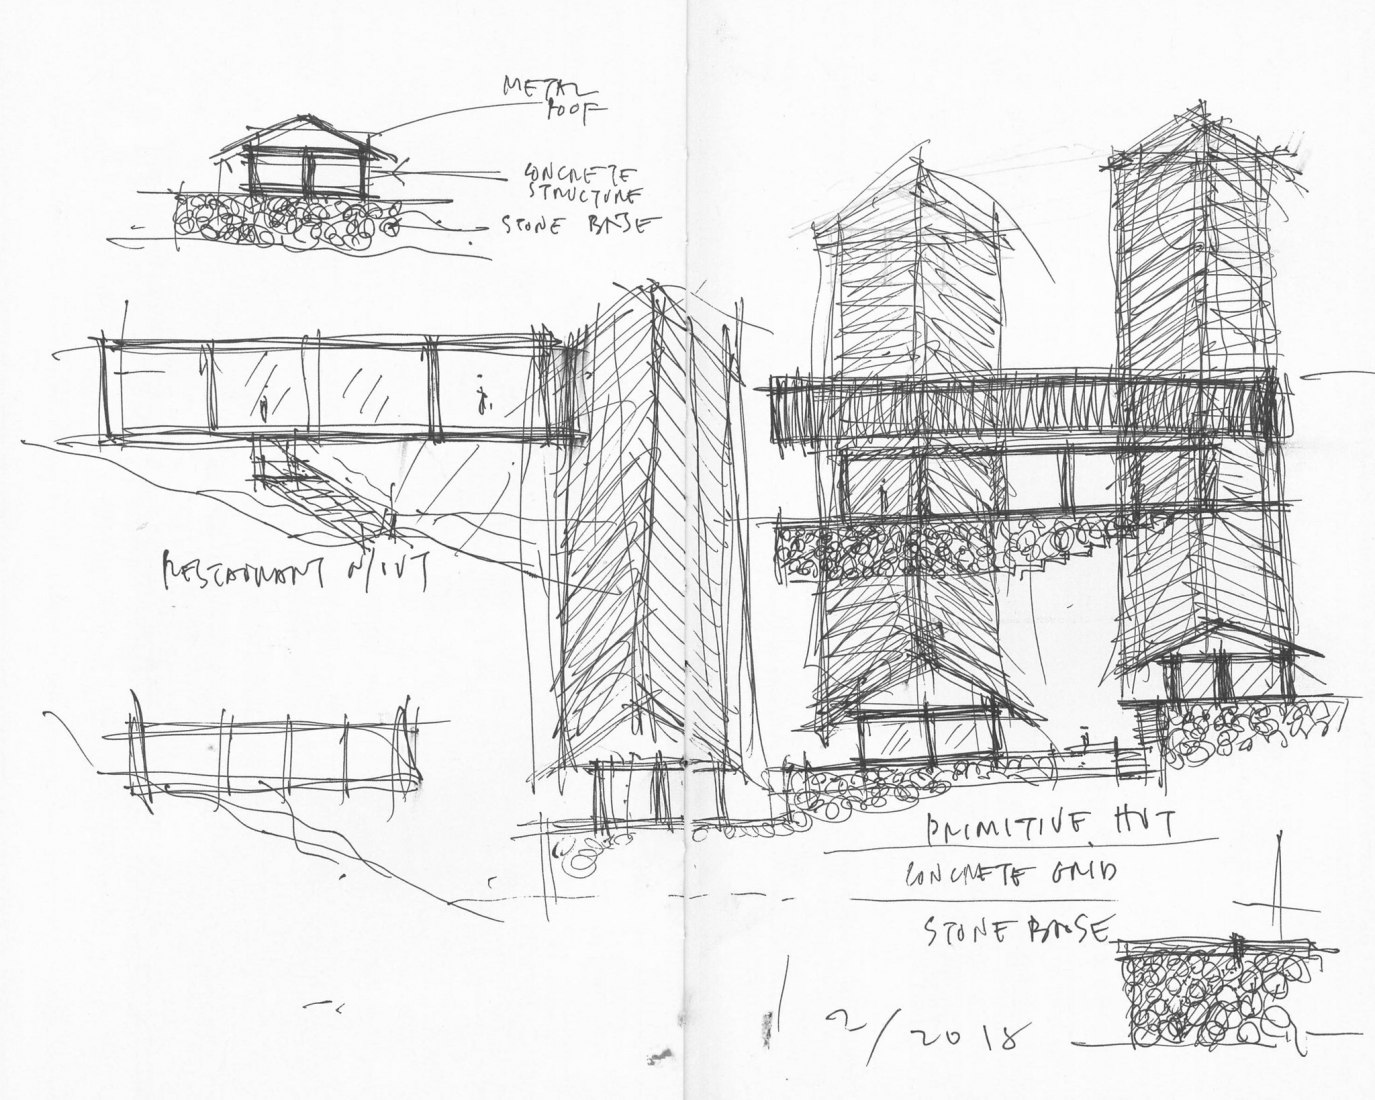 METAL
ROOF
CONCRETE
STRUCTURE
STONE BASE
RESTAURANT W/OUT
PRIMITIVE HUT
CONCRETE GRID
STONE BASE
2/2018